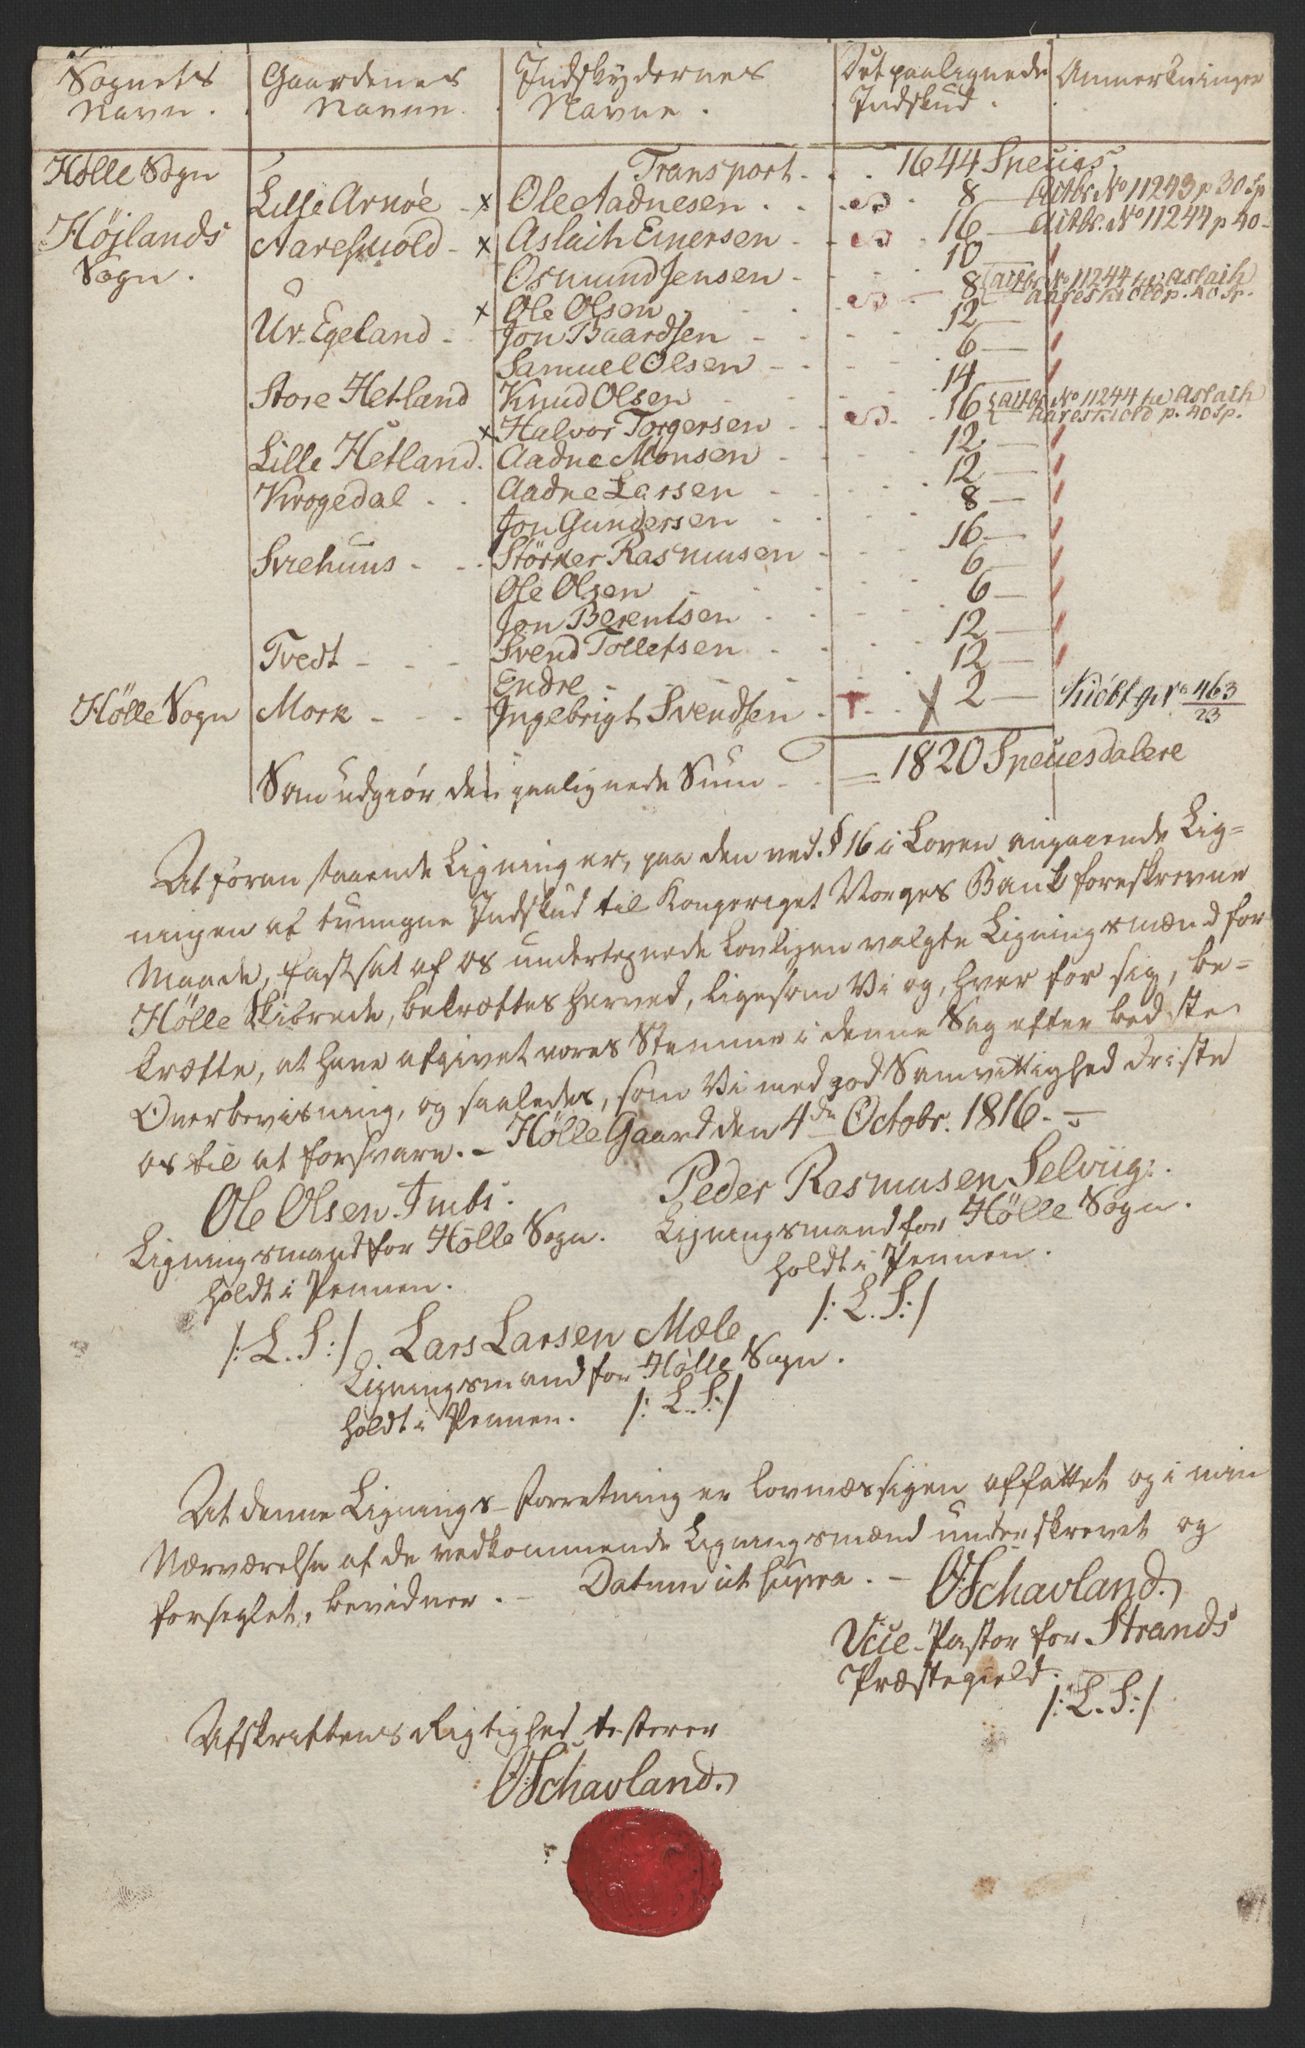 Sognets Navn. Gaardenes Navne. Indskydernes Navne. Det paalignede Indskud. Anmerkninger
Hølle Sogn Transport - . . 1644 Species.
Lille Arnøe - x Ole Aadnesen . . 8 Actbr. No 11243 p 30 Sp
Højlands Sogn. Aareskiold - x Aslach Einersen - 16 - Actbr. No 11244 p 40 -
Osmund Jensen - 10
x Ole Olsen - 8 Actbr No 11244 Aslach Aareskiold p. 40 Sp.
Ur. Egeland - Jon Baardsen - 12
Samuel Olsen - 6
Store Hetland Knud Olsen 14
x Halvor Torgersen - 16 Actbr No 11244 Aslach Aareskiold p. 40 Sp.
Lille Hetland. Aadne Monsen - 12
Krogedal - . Aadne Larsen - 12
Jon Gundersen 8
Sviehuus - . . Störker Rasmusen 16
Ole Olsen 6
Jon Berentsen 6
Tvedt - - - Svend Tolletsen 12
Endre - - 12
Hølle Sogn Mork - - - Ingebrigt Svendsen . x 2 - 463/23
Som udgiør den paalignede Sum - . = 1820 Speciesdalere
At foran staaende Ligning er, paa den ved § 16 i Loven angaaende Lig=
ningen af tvungne Indskud til Kongeriget Norges Bank foreskrevne
Maade, fastsat af os undertegnede lovligen valgte Ligningsmænd for
Hølle Skibrede, bekræftes herved, ligesom Vi og, hver for sig, be=
kræfte, at have afgivet vores Stemme i denne Sag efter bedste
Overbeviisning, og saaledes, som Vi med god Samvittighed driste
os til at forsvare. - Hølle Gaard den 4de Octobr. 1816. -
Ole Olsen Imbs. Peder Rasmusen Selviig.
Ligningsmand for Hølle Sogn. Ligningsmand for Hölle Sogn.
holdt i Pennen. holdt i Pennen.
/: L. S :/ Lars Larsen Mæle /: L. S :/
Ligningsmand for Hölle Sogn.
holdt i Pennen. /: L. S :/
At denne Lignings-Forretning er lovmæssigen affattet og i min
Nærværelse af de vedkommende Ligningsmænd underskrevet og
forseglet, bevidner. - Datum ut supra. - O Schavland.
Vice-Pastor for Strands
Præstegield.
/: L. S :/
Afskriftens Rigtighed testerer
O Schavland.